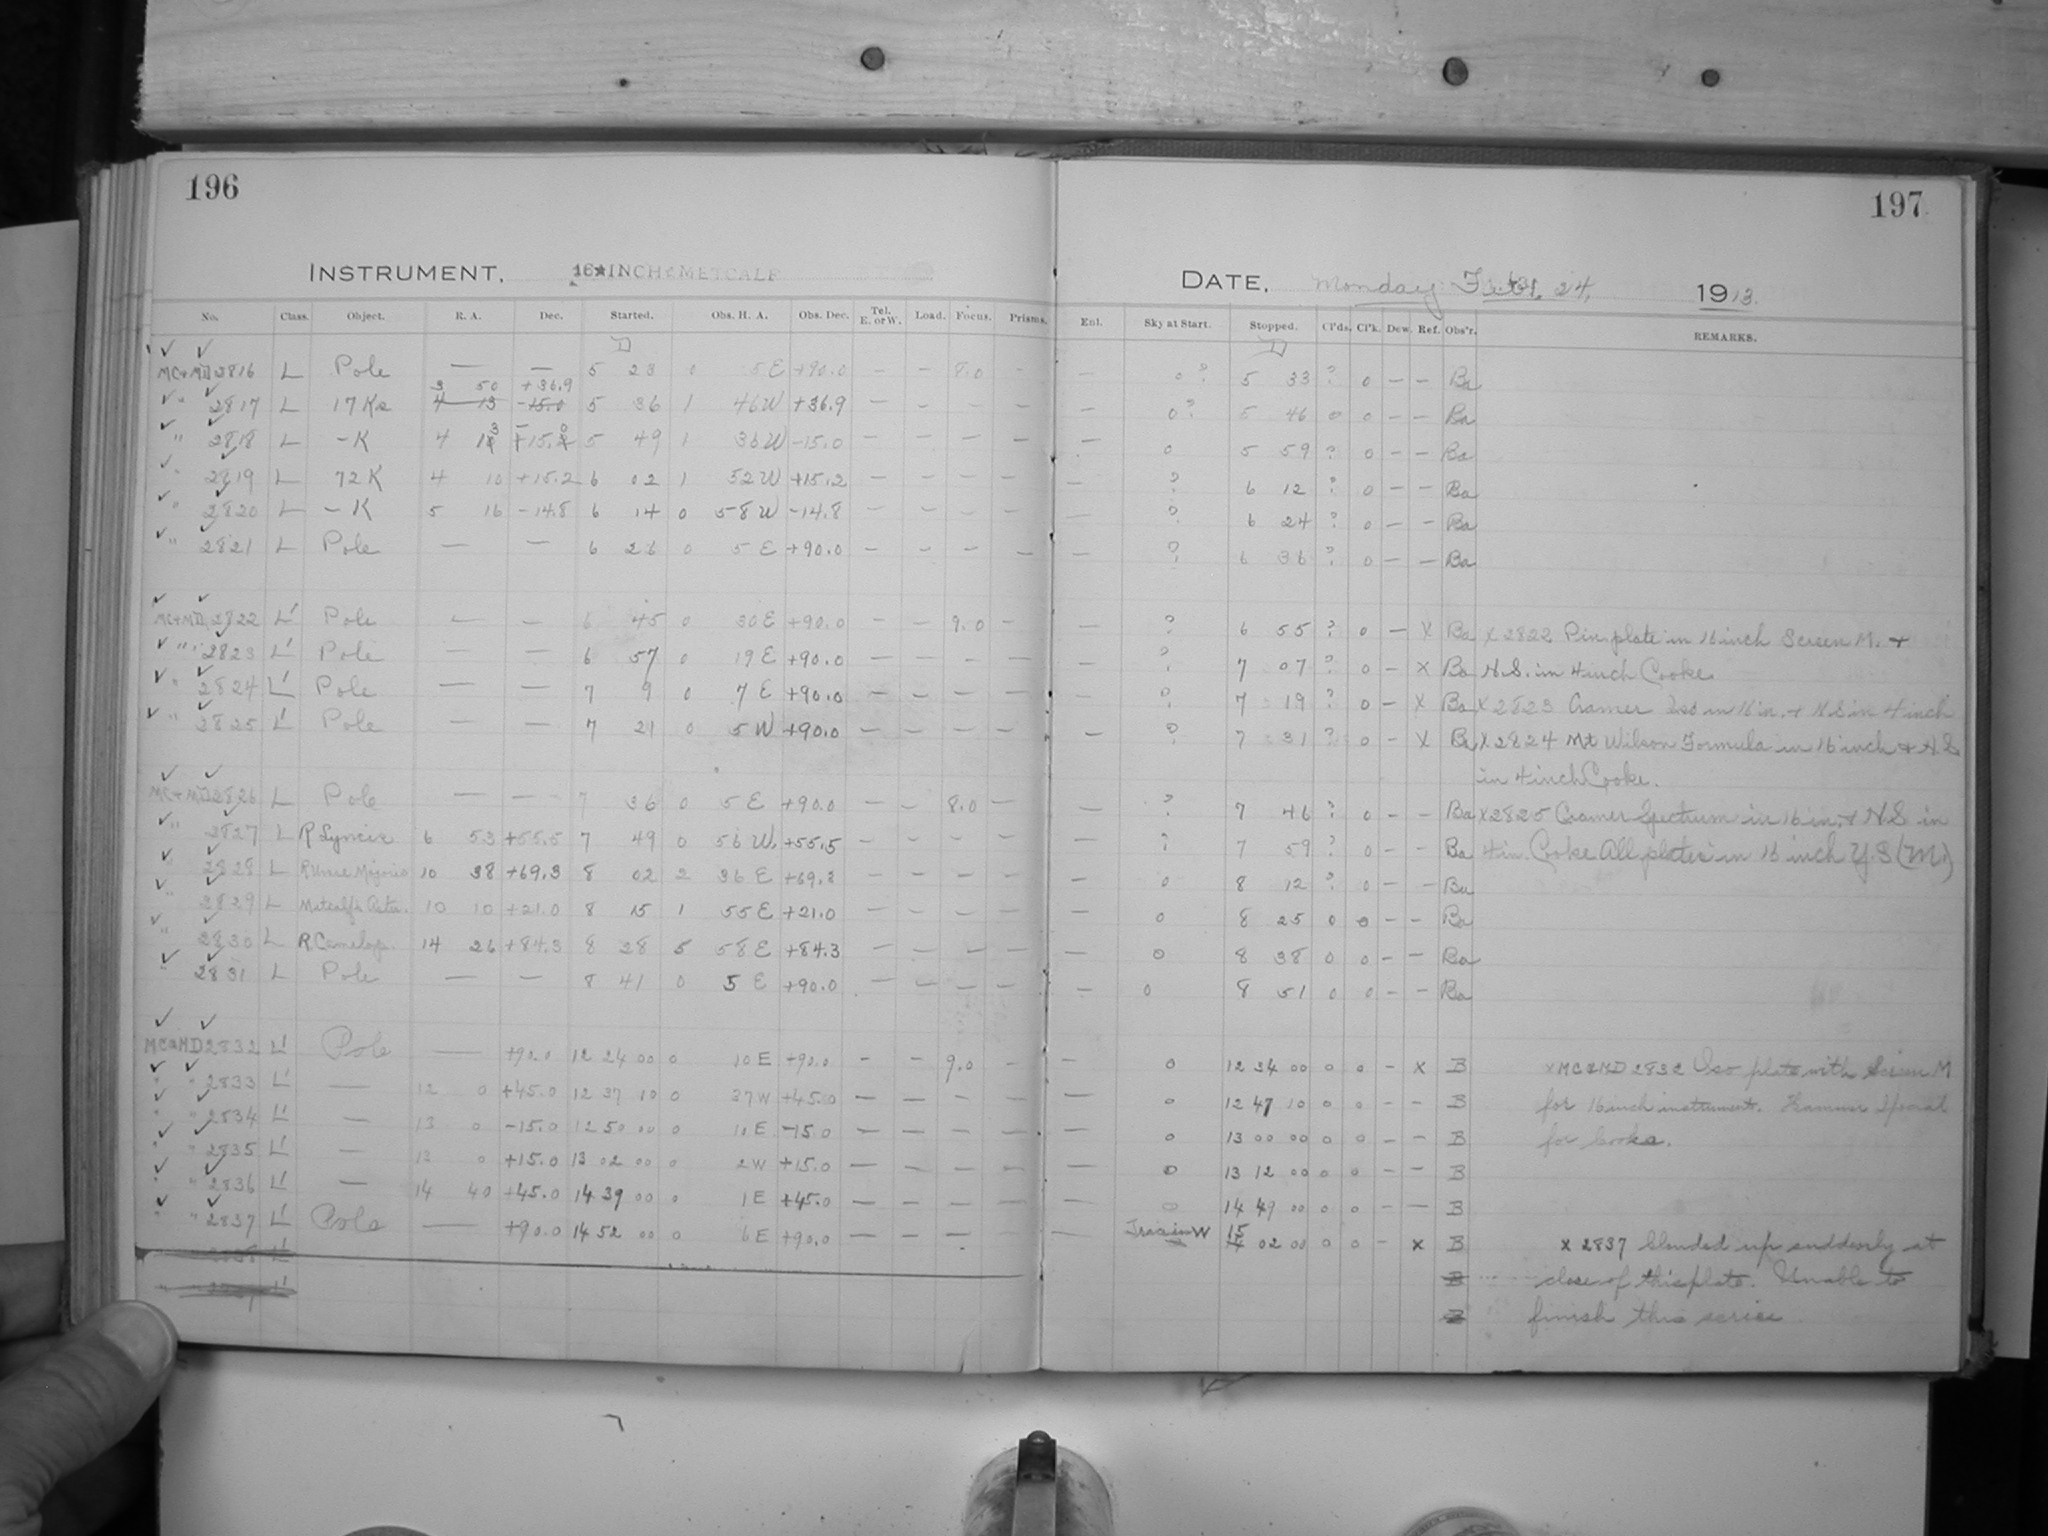 196
INSTRUMENT, 16★INCH METCALF
No. Class. Object. R. A. Dec. Started. Obs. H. A. Obs. Dec. Tel. E. or W. Load. Focus. Prisms.
MC+MD 2816 L Pole — — 5 23 0 5 E +90.0 — — 8.0 —
3 50 +36.9
" 2817 L 17 Ka 4 13 -15.0 5 36 1 46 W +36.9 — — — —
" 2818 L - K 4 13 -15.0 5 49 1 36 W -15.0 — — — —
" 2819 L 72 K 4 10 +15.2 6 02 1 52 W +15.2 — — — —
" 2820 L - K 5 16 -14.8 6 14 0 58 W -14.8 — — — —
" 2821 L Pole — — 6 26 0 5 E +90.0 — — — —
MC+MD 2822 L' Pole — — 6 45 0 30 E +90.0 — — 9.0 —
" 2823 L' Pole — — 6 57 0 19 E +90.0 — — — —
" 2824 L' Pole — — 7 9 0 7 E +90.0 — — — —
" 2825 L' Pole — — 7 21 0 5 W +90.0 — — — —
MC+MD 2826 L Pole — — 7 36 0 5 E +90.0 — — 8.0 —
" 2827 L R Lyncis 6 53 +55.5 7 49 0 56 W. +55.5 — — — —
2828 L R Ursae Majoris 10 38 +69.3 8 02 2 36 E +69.3 — — — —
" 2829 L Metcalf's Aster. 10 10 +21.0 8 15 1 55 E +21.0 — — — —
" 2830 L R Camelop. 14 26 +84.3 8 28 5 58 E +84.3 — — — —
" 2831 L Pole — — 8 41 0 5 E +90.0 — — — —
MC&MD 2832 L' Pole — +90.0 12 24 00 0 10 E +90.0 — — 9.0 —
" " 2833 L' — 12 0 +45.0 12 37 10 0 37 W +45.0 — — — —
" " 2834 L' — 13 0 -15.0 12 50 00 0 10 E -15.0 — — — —
" 2835 L' — 13 0 +15.0 13 02 00 0 2 W +15.0 — — — —
" " 2836 L' — 14 40 +45.0 14 39 00 0 1 E +45.0 — — — —
" " 2837 L' Pole — +90.0 14 52 00 0 6 E +90.0 — — — —
197
DATE, Monday Feb. 24, 1913.
Enl. Sky at Start. Stopped. Cl'ds. Cl'k. Dew. Ref. Obs'r. REMARKS.
— 0? 5 33 ? 0 — — Ba
— 0? 5 46 0 0 — — Ba
— 0 5 59 ? 0 — — Ba
— ? 6 12 ? 0 — — Ba
— ? 6 24 ? 0 — — Ba
— ? 6 36 ? 0 — — Ba
— ? 6 55 ? 0 — X Ba X 2822 Pinplate in 16 inch Screen M. +
— ? 7 07 ? 0 — X Ba N.S. in 4 inch Cooke
— ? 7 19 ? 0 — X Ba X 2823 Cramer Iso in 16 in. + N S in 4 inch
— ? 7 31 ? 0 — X Ba X 2824 Mt Wilson Formula in 16 inch + N.S.
in 4 inch Cooke.
— ? 7 46 ? 0 — — Ba X 2825 Cramer Spectrum in 16 in. + N.S in
— ? 7 59 ? 0 — — Ba 4 in. Cooke All plates in 16 inch Y.S (M.)
— 0 8 12 ? 0 — — Ba
— 0 8 25 0 0 — — Ba
— 0 8 38 0 0 — — Ba
— 0 8 51 0 0 — — Ba
— 0 12 34 00 0 0 — X B X MC&MD 2832 Iso plate with Screen M
— 0 12 47 10 0 0 — — B for 16 inch instrument. Hammer Special
— 0 13 00 00 0 0 — — B for Cooke.
— 0 13 12 00 0 0 — — B
— 0 14 49 00 0 0 — — B
— W 15 02 00 0 0 — X B X 2837 Clouded up suddenly at
B close of this plate. Unable to
B finish this series